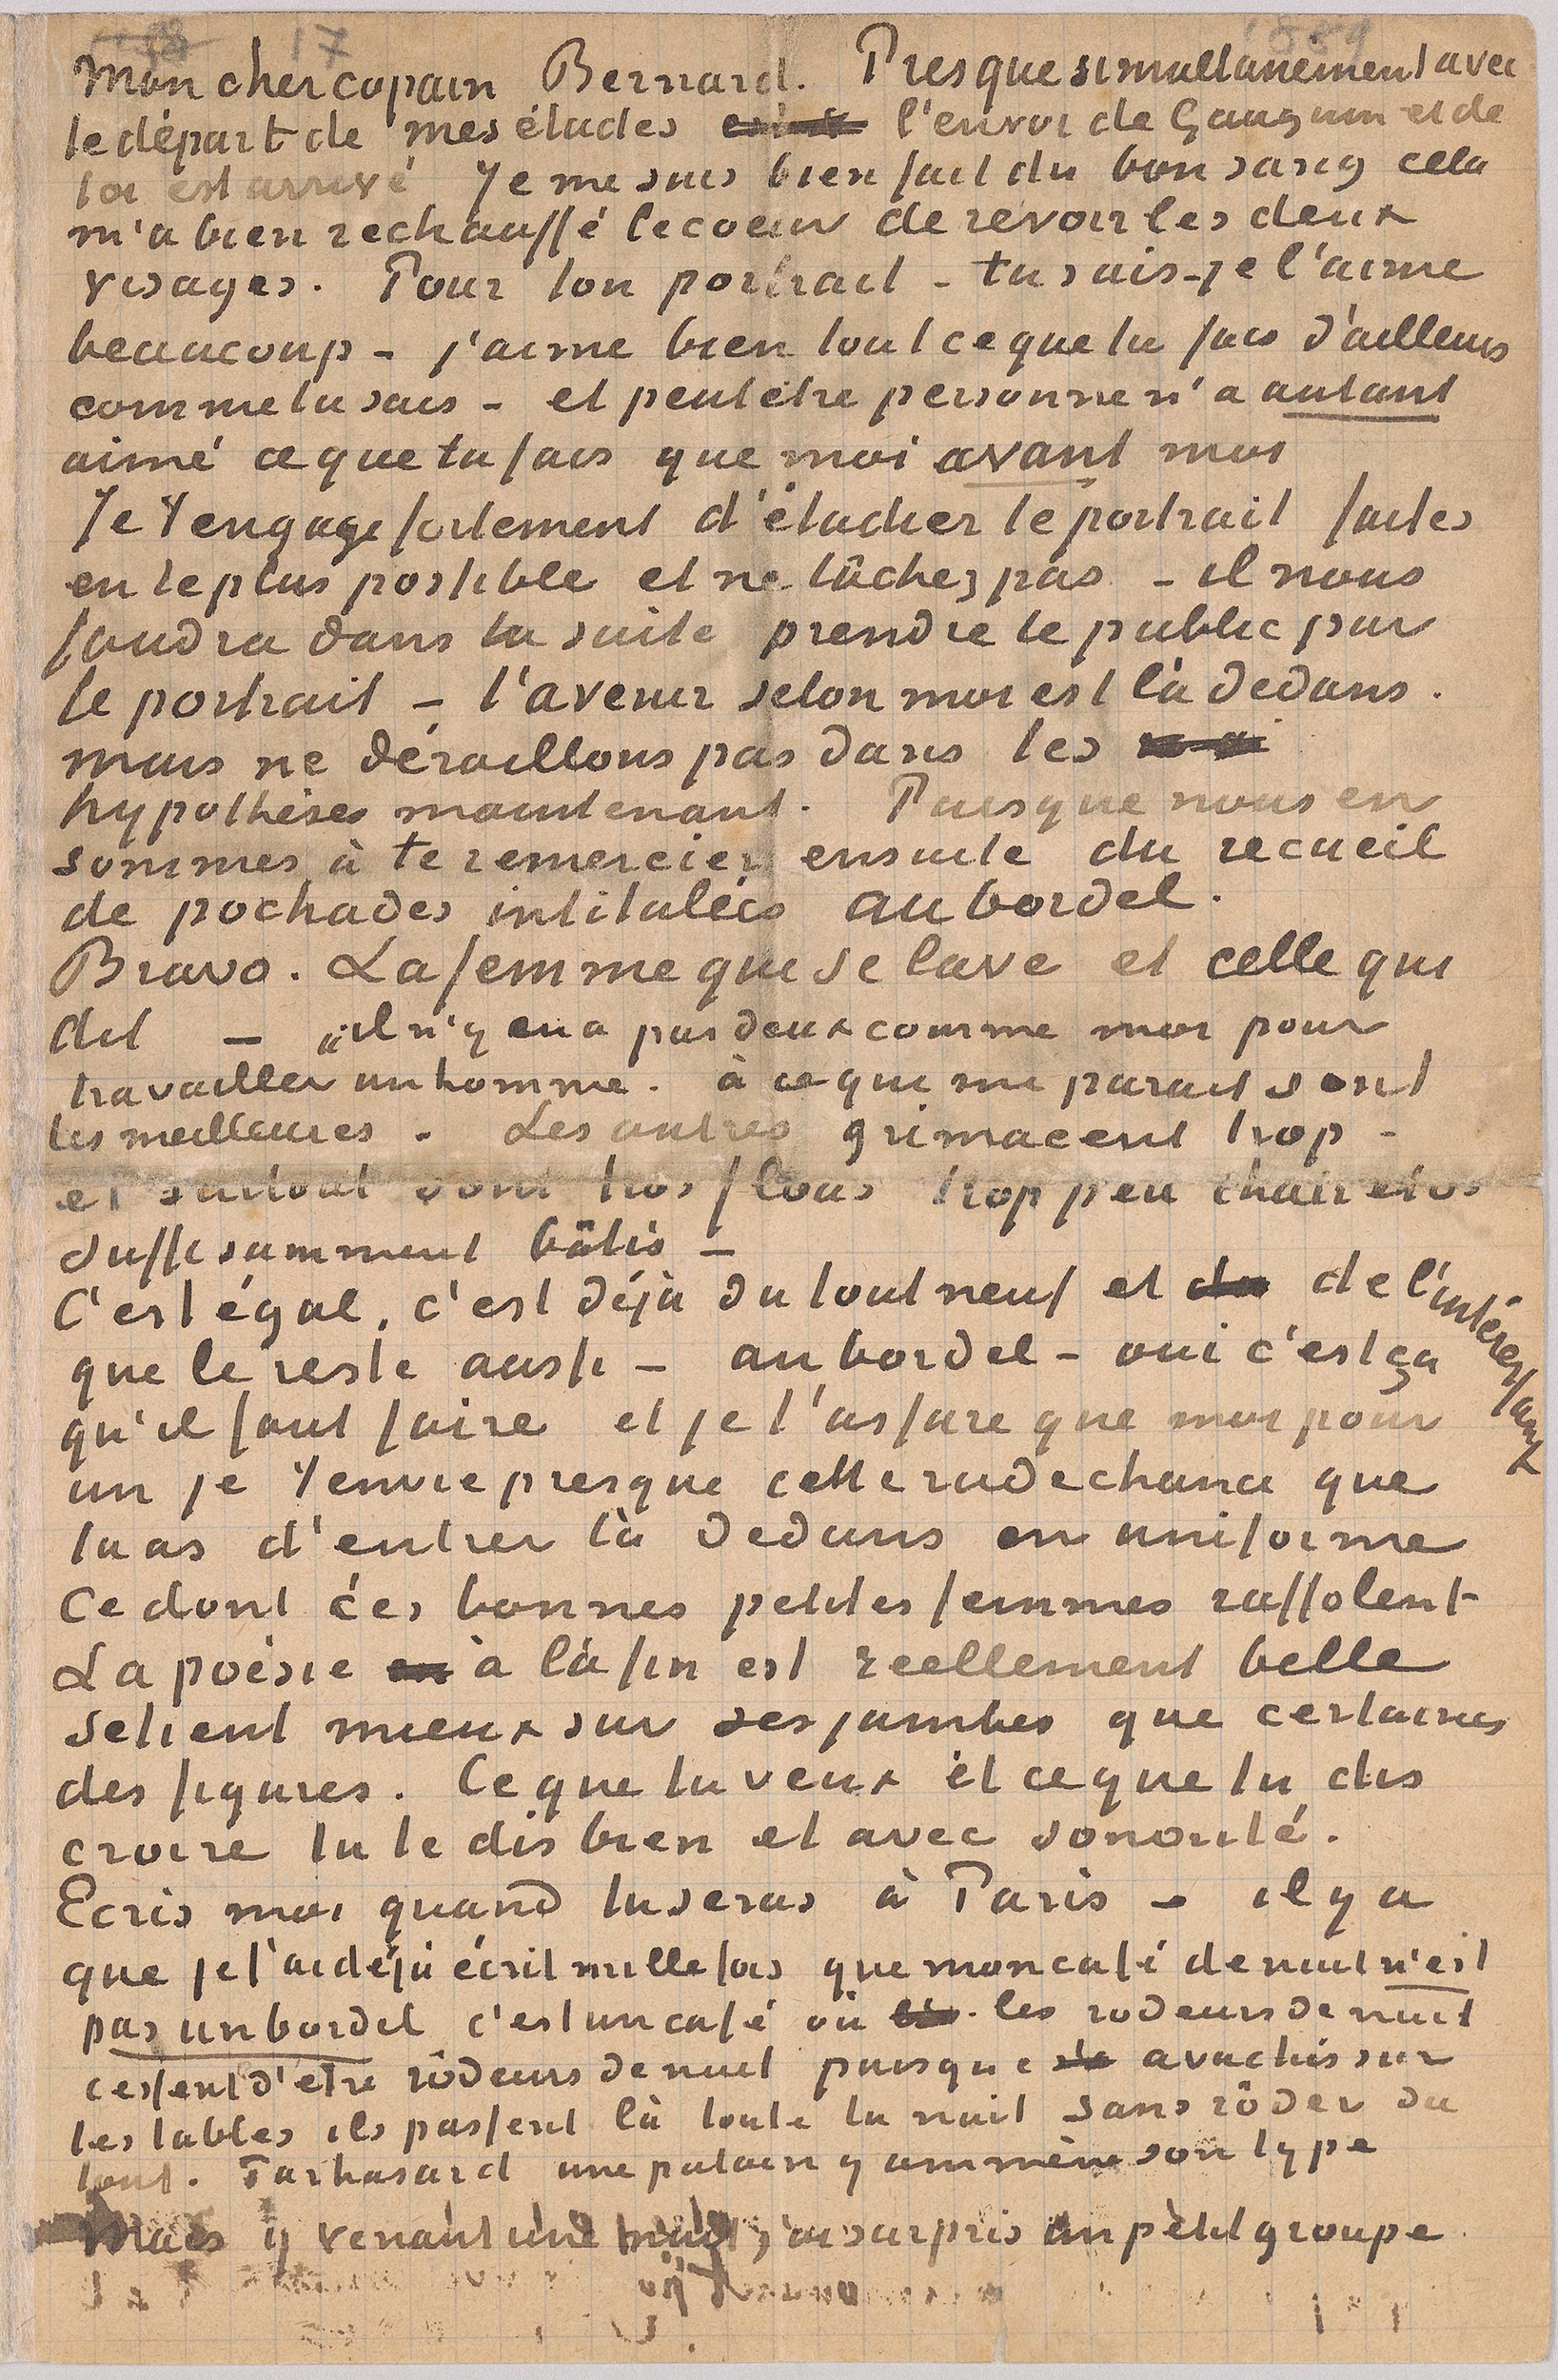 17
1889
Mon cher copain Bernard. Presque simultanément avec
le départ de mes études l'envoi de Gauguin et de
toi est arrivé Je me suis bien fait du bon sang cela
m'a bien rechauffé le coeur de revoir les deux
visages. Pour ton portrait - tu sais - je l'aime
beaucoup - j'aime bien tout ce que tu fais d'ailleurs
comme tu sais - et peutetre personne n'a autant
aimé ce que tu fais que moi avant moi
Je t'engage fortement d'étudier le portrait faites
en le plus possible et ne lâchez pas - il nous
faudra dans la suite prendre le public par
le portrait - l'avenir selon moi est là dedans.
mais ne déraillons pas dans les
hypothèses maintenant. Puisque nous en
sommes à te remercier ensuite du recueil
de pochades intitulées au bordel.
Bravo. La femme qui se lave et celle qui
dit - "il n'y en a pas deux comme moi pour
travailler un homme. à ce qui me parait sont
les meilleures. Les autres grimacent trop -
et surtout sont trop flous trop peu chair et os
suffisamment bâtis -
C'est égal, c'est déjà du tout neuf et de l'intéressant
que le reste aussi - au bordel - oui c'est ça
qu'il faut faire et je t'assure que moi pour
un je t'envie presque cette rude chance que
tu as d'entrer là dedans en uniforme
Ce dont ces bonnes petites femmes raffolent
La poèsie à la fin est reellement belle
se tient mieux sur ses jambes que certaines
des figures. Ce que tu veux et ce que tu dis
croire tu le dis bien et avec sonorité.
Ecris moi quand tu seras à Paris - il y a
que je t'ai déjà écrit mille fois que mon café de nuit n'est
pas un bordel c'est un café où les rodeurs de nuit
cessent d'etre rôdeurs de nuit puisque avachis sur
les tables ils passent là toute la nuit sans rôder du
tout. Par hasard une putain y ammène son type
Mais y venant une nuit j'ai surpris un petit groupe